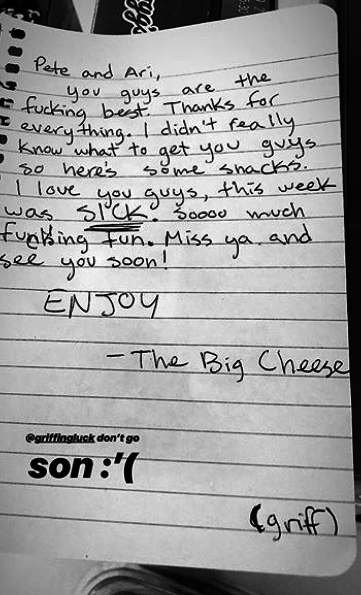 Pete and Ari,
you guys are the
fucking best. Thanks for
everything. I didn't really
know what to get you guys
so here's some snacks.
I love you guys, this week
was SICK. Soooo much
fun. Miss ya and
see you soon!
ENJOY
- The Big Cheese
@griffingluck don't go
son :'(
(griff)